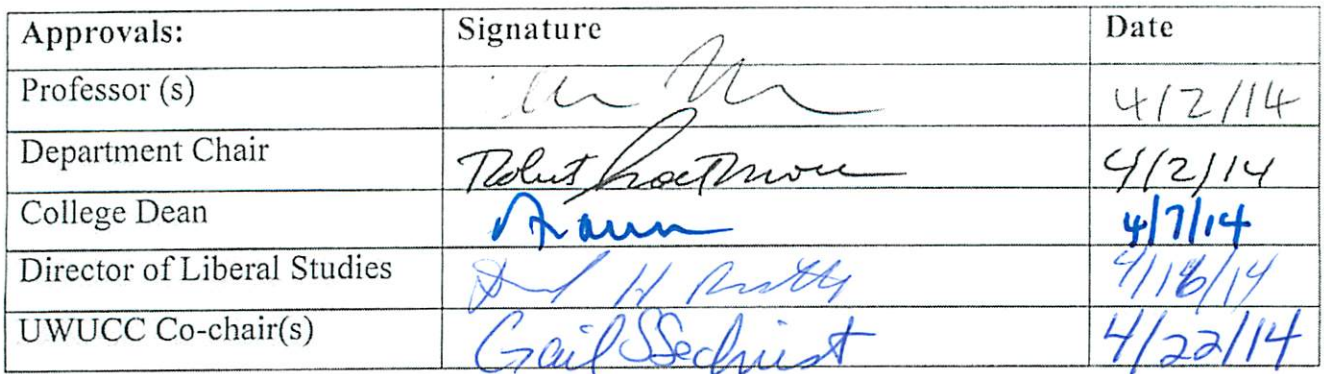 Approvals: Signature Date
Professor (s) 4/2/14
Department Chair Robert 4/2/14
College Dean 4/7/14
Director of Liberal Studies H 4/16/14
UWUCC Co-chair(s) Gail S Sechrist 4/22/14